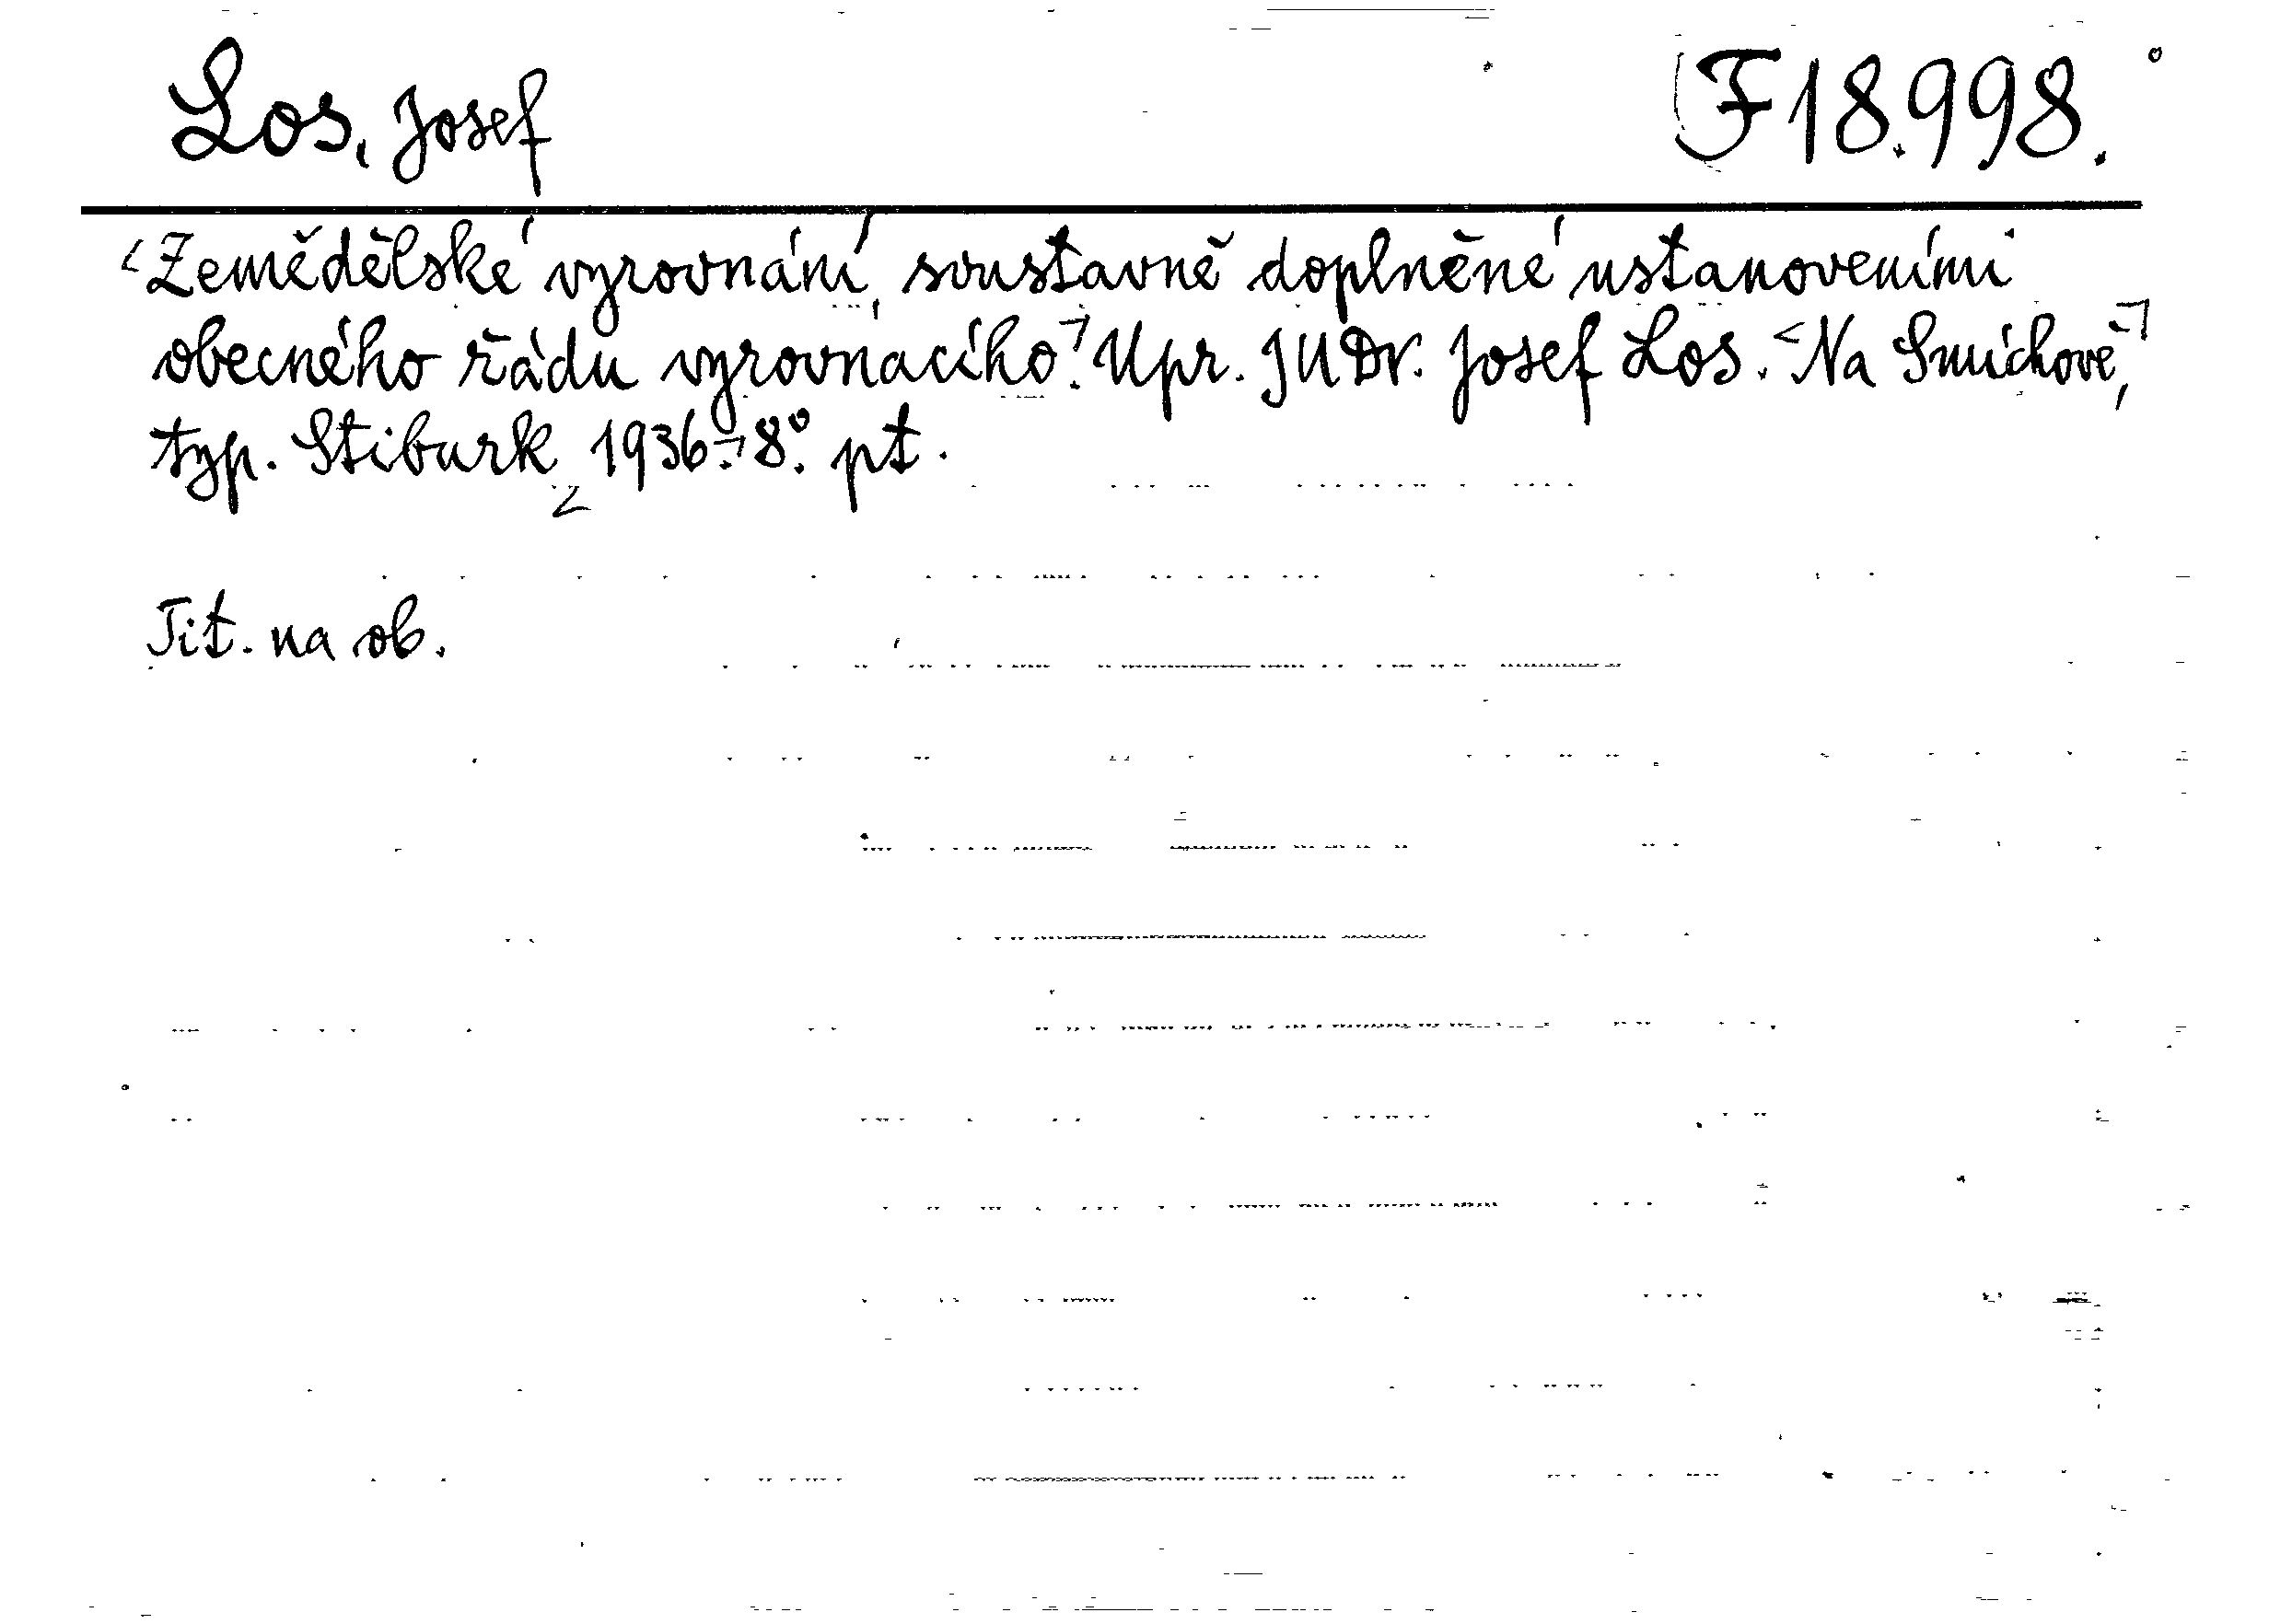 Los, Josef F 18.998.
<Zemědělské vyrovnání, soustavně doplněné ustanoveními
obecného řádu vyrovnacího.> Upr. JUDr. Josef Los. <Na Smíchově,>
typ. Stiburk <1936.> 8°. pt.
Tit. na ob.